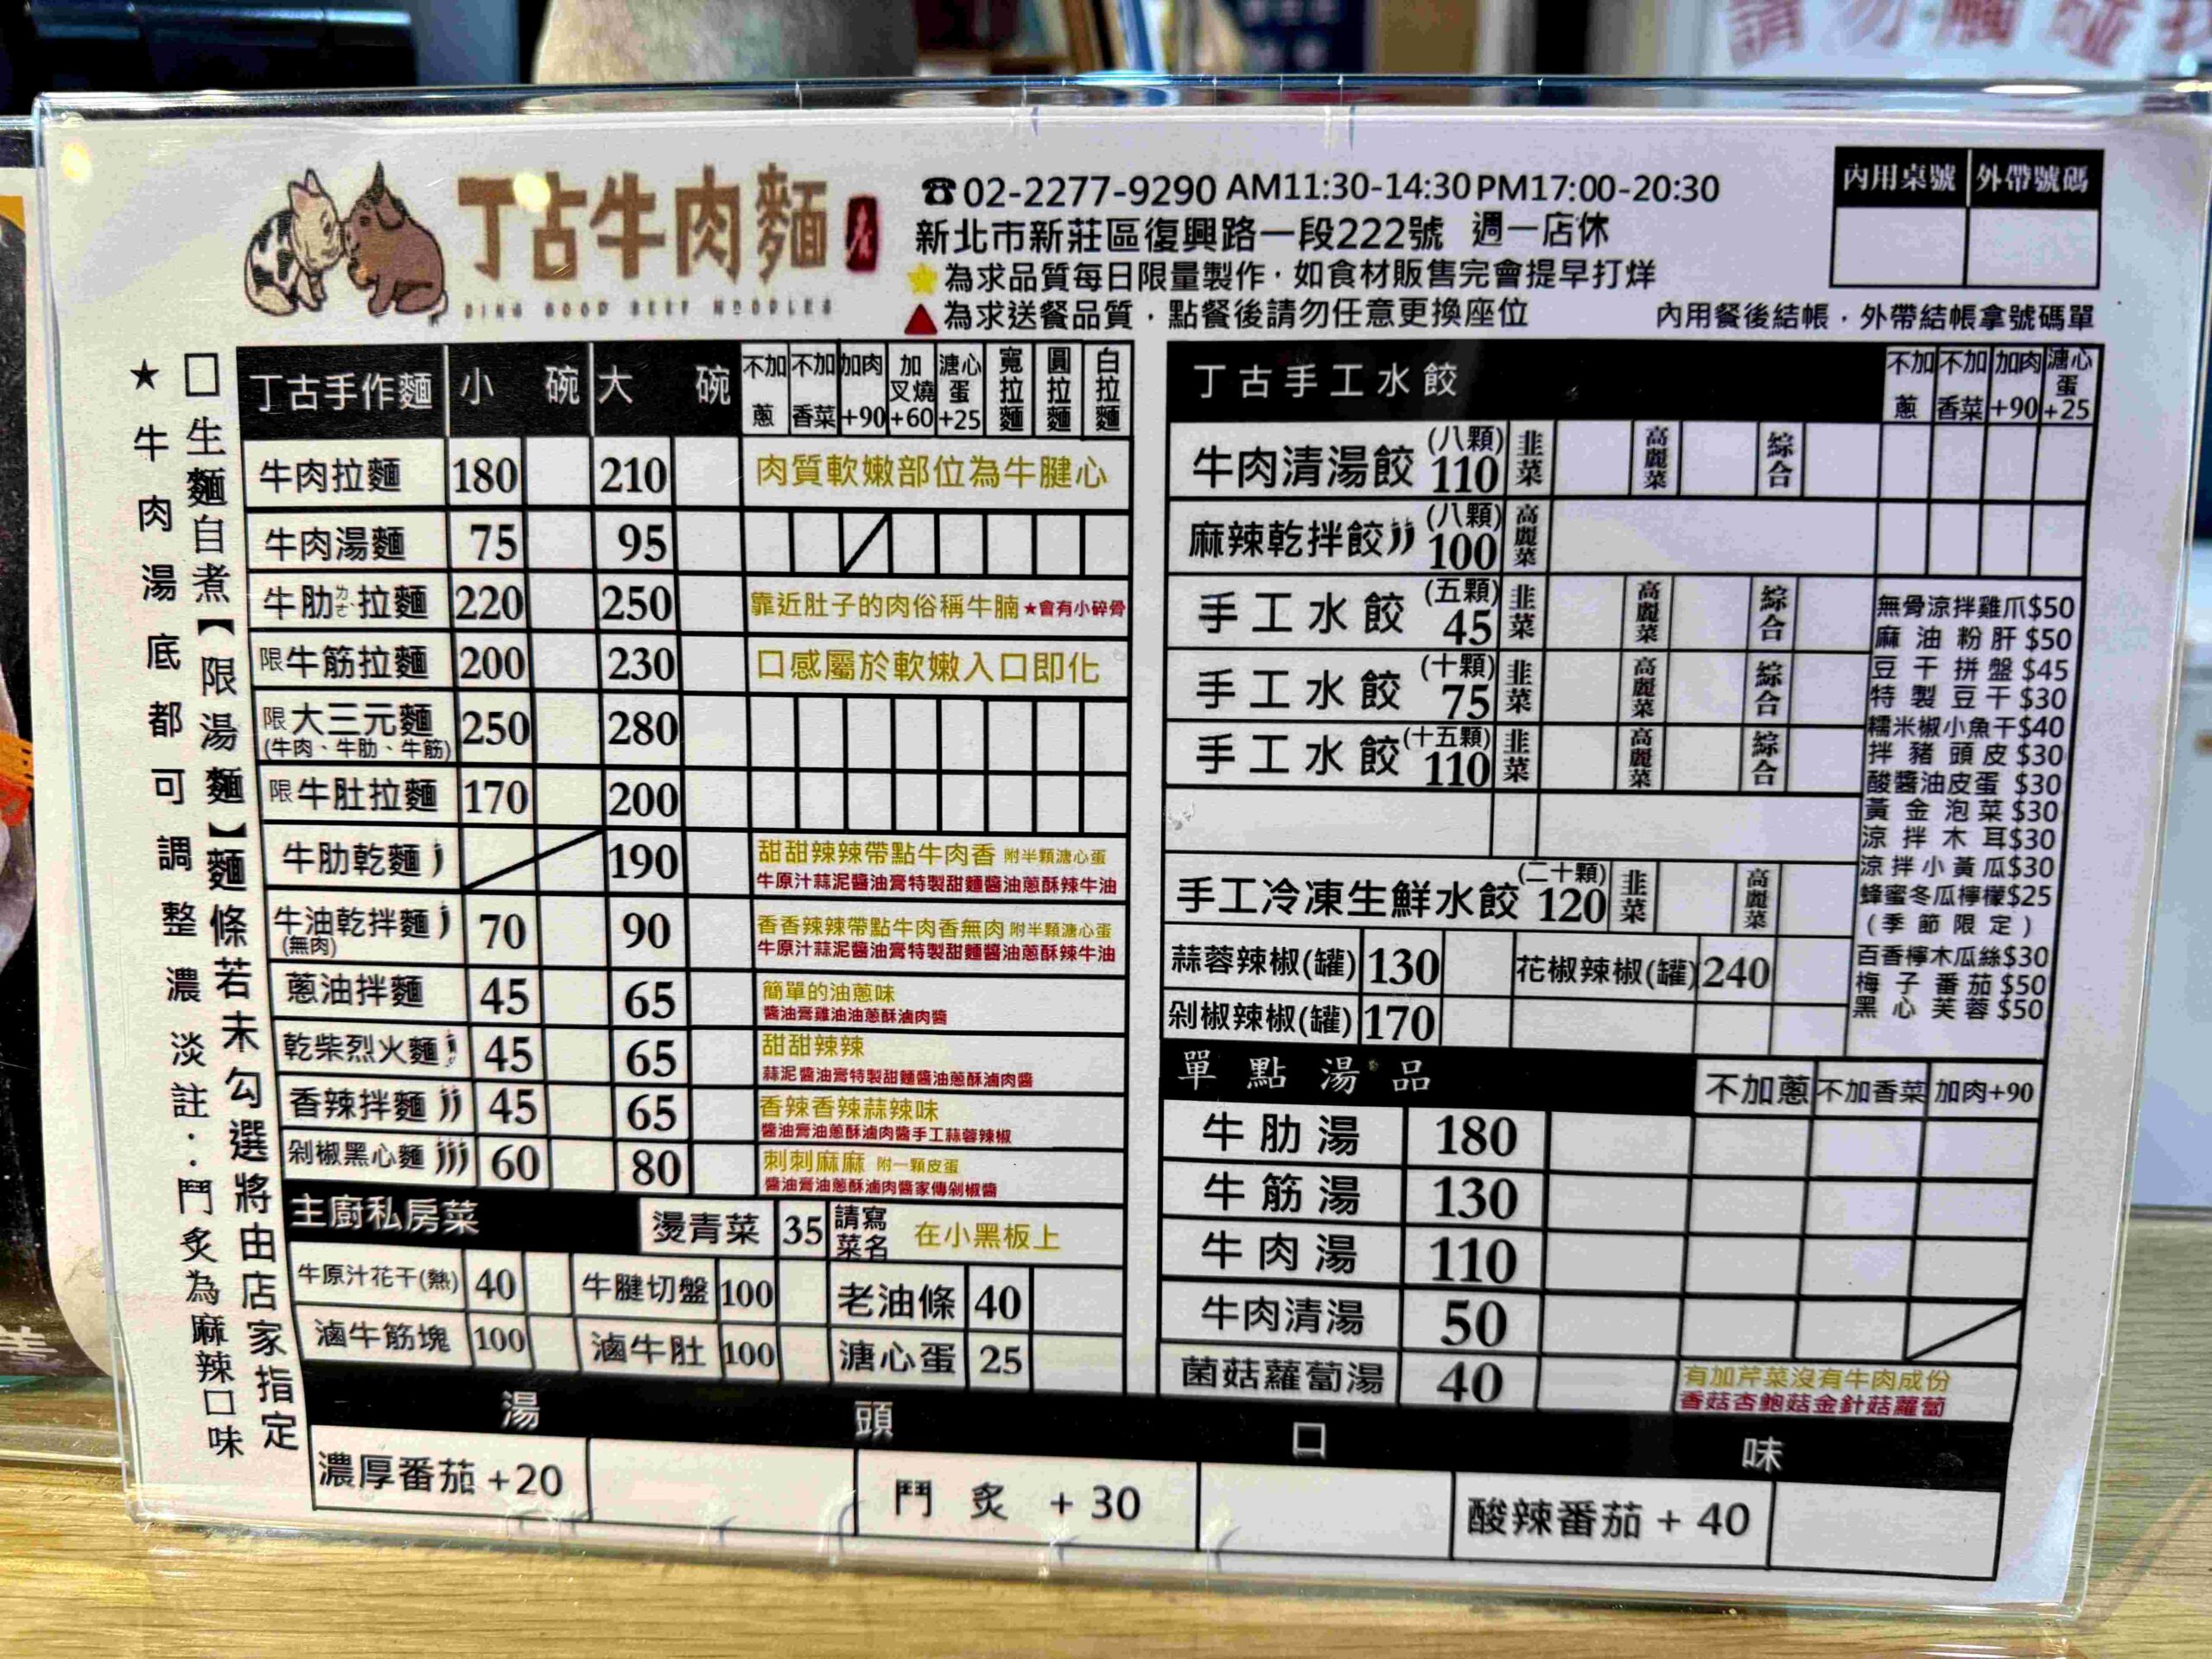 請勿觸碰
丁古牛肉麵
DING GOOD BEEF NOODLES
☎02-2277-9290 AM11:30-14:30 PM17:00-20:30
新北市新莊區復興路一段222號 週一店休
為求品質每日限量製作，如食材販售完會提早打烊
為求送餐品質，點餐後請勿任意更換座位
內用餐後結帳，外帶結帳拿號碼單
內用桌號 外帶號碼
★牛肉湯底都可調整濃淡 註：鬥炙為麻辣口味
□生麵自煮【限湯麵】麵條若未勾選將由店家指定
丁古手作麵 小碗 大碗 不加蔥 不加香菜 加肉+90 加叉燒+60 溏心蛋+25 寬拉麵 圓拉麵 白拉麵
牛肉拉麵 180 210 肉質軟嫩部位為牛腱心
牛肉湯麵 75 95
牛肋ㄌㄜˋ拉麵 220 250 靠近肚子的肉俗稱牛腩★會有小碎骨
限牛筋拉麵 200 230 口感屬於軟嫩入口即化
限大三元麵 250 280
(牛肉、牛肋、牛筋)
限牛肚拉麵 170 200
牛肋乾麵 190 甜甜辣辣帶點牛肉香 附半顆溏心蛋
牛原汁蒜泥醬油膏特製甜麵醬油蔥酥辣牛油
牛油乾拌麵 70 90 香香辣辣帶點牛肉香無肉 附半顆溏心蛋
(無肉) 牛原汁蒜泥醬油膏特製甜麵醬油蔥酥辣牛油
蔥油拌麵 45 65 簡單的油蔥味
醬油膏雞油油蔥酥滷肉醬
乾柴烈火麵 45 65 甜甜辣辣
蒜泥醬油膏特製甜麵醬油蔥酥滷肉醬
香辣拌麵 45 65 香辣香辣蒜辣味
醬油膏油蔥酥滷肉醬手工蒜蓉辣椒
剁椒黑心麵 60 80 刺刺麻麻 附一顆皮蛋
醬油膏油蔥酥滷肉醬家傳剁椒醬
主廚私房菜 燙青菜 35 請寫菜名 在小黑板上
牛原汁花干(熱) 40 牛腱切盤 100 老油條 40
滷牛筋塊 100 滷牛肚 100 溏心蛋 25
丁古手工水餃 不加蔥 不加香菜 加肉+90 溏心蛋+25
牛肉清湯餃 (八顆) 110 韭菜 高麗菜 綜合
麻辣乾拌餃 (八顆) 100 高麗菜
手工水餃 (五顆) 45 韭菜 高麗菜 綜合
手工水餃 (十顆) 75 韭菜 高麗菜 綜合
手工水餃 (十五顆) 110 韭菜 高麗菜 綜合
手工冷凍生鮮水餃 (二十顆) 120 韭菜 高麗菜
蒜蓉辣椒(罐) 130 花椒辣椒(罐) 240
剁椒辣椒(罐) 170
無骨涼拌雞爪$50
麻油粉肝$50
豆干拼盤$45
特製豆干$30
糯米椒小魚干$40
拌豬頭皮$30
酸醬油皮蛋$30
黃金泡菜$30
涼拌木耳$30
涼拌小黃瓜$30
蜂蜜冬瓜檸檬$25
(季節限定)
百香檸木瓜絲$30
梅子番茄$50
黑心芙蓉$50
單點湯品 不加蔥 不加香菜 加肉+90
牛肋湯 180
牛筋湯 130
牛肉湯 110
牛肉清湯 50
菌菇蘿蔔湯 40 有加芹菜沒有牛肉成份
香菇杏鮑菇金針菇蘿蔔
湯頭口味
濃厚番茄+20 鬥炙+30 酸辣番茄+40